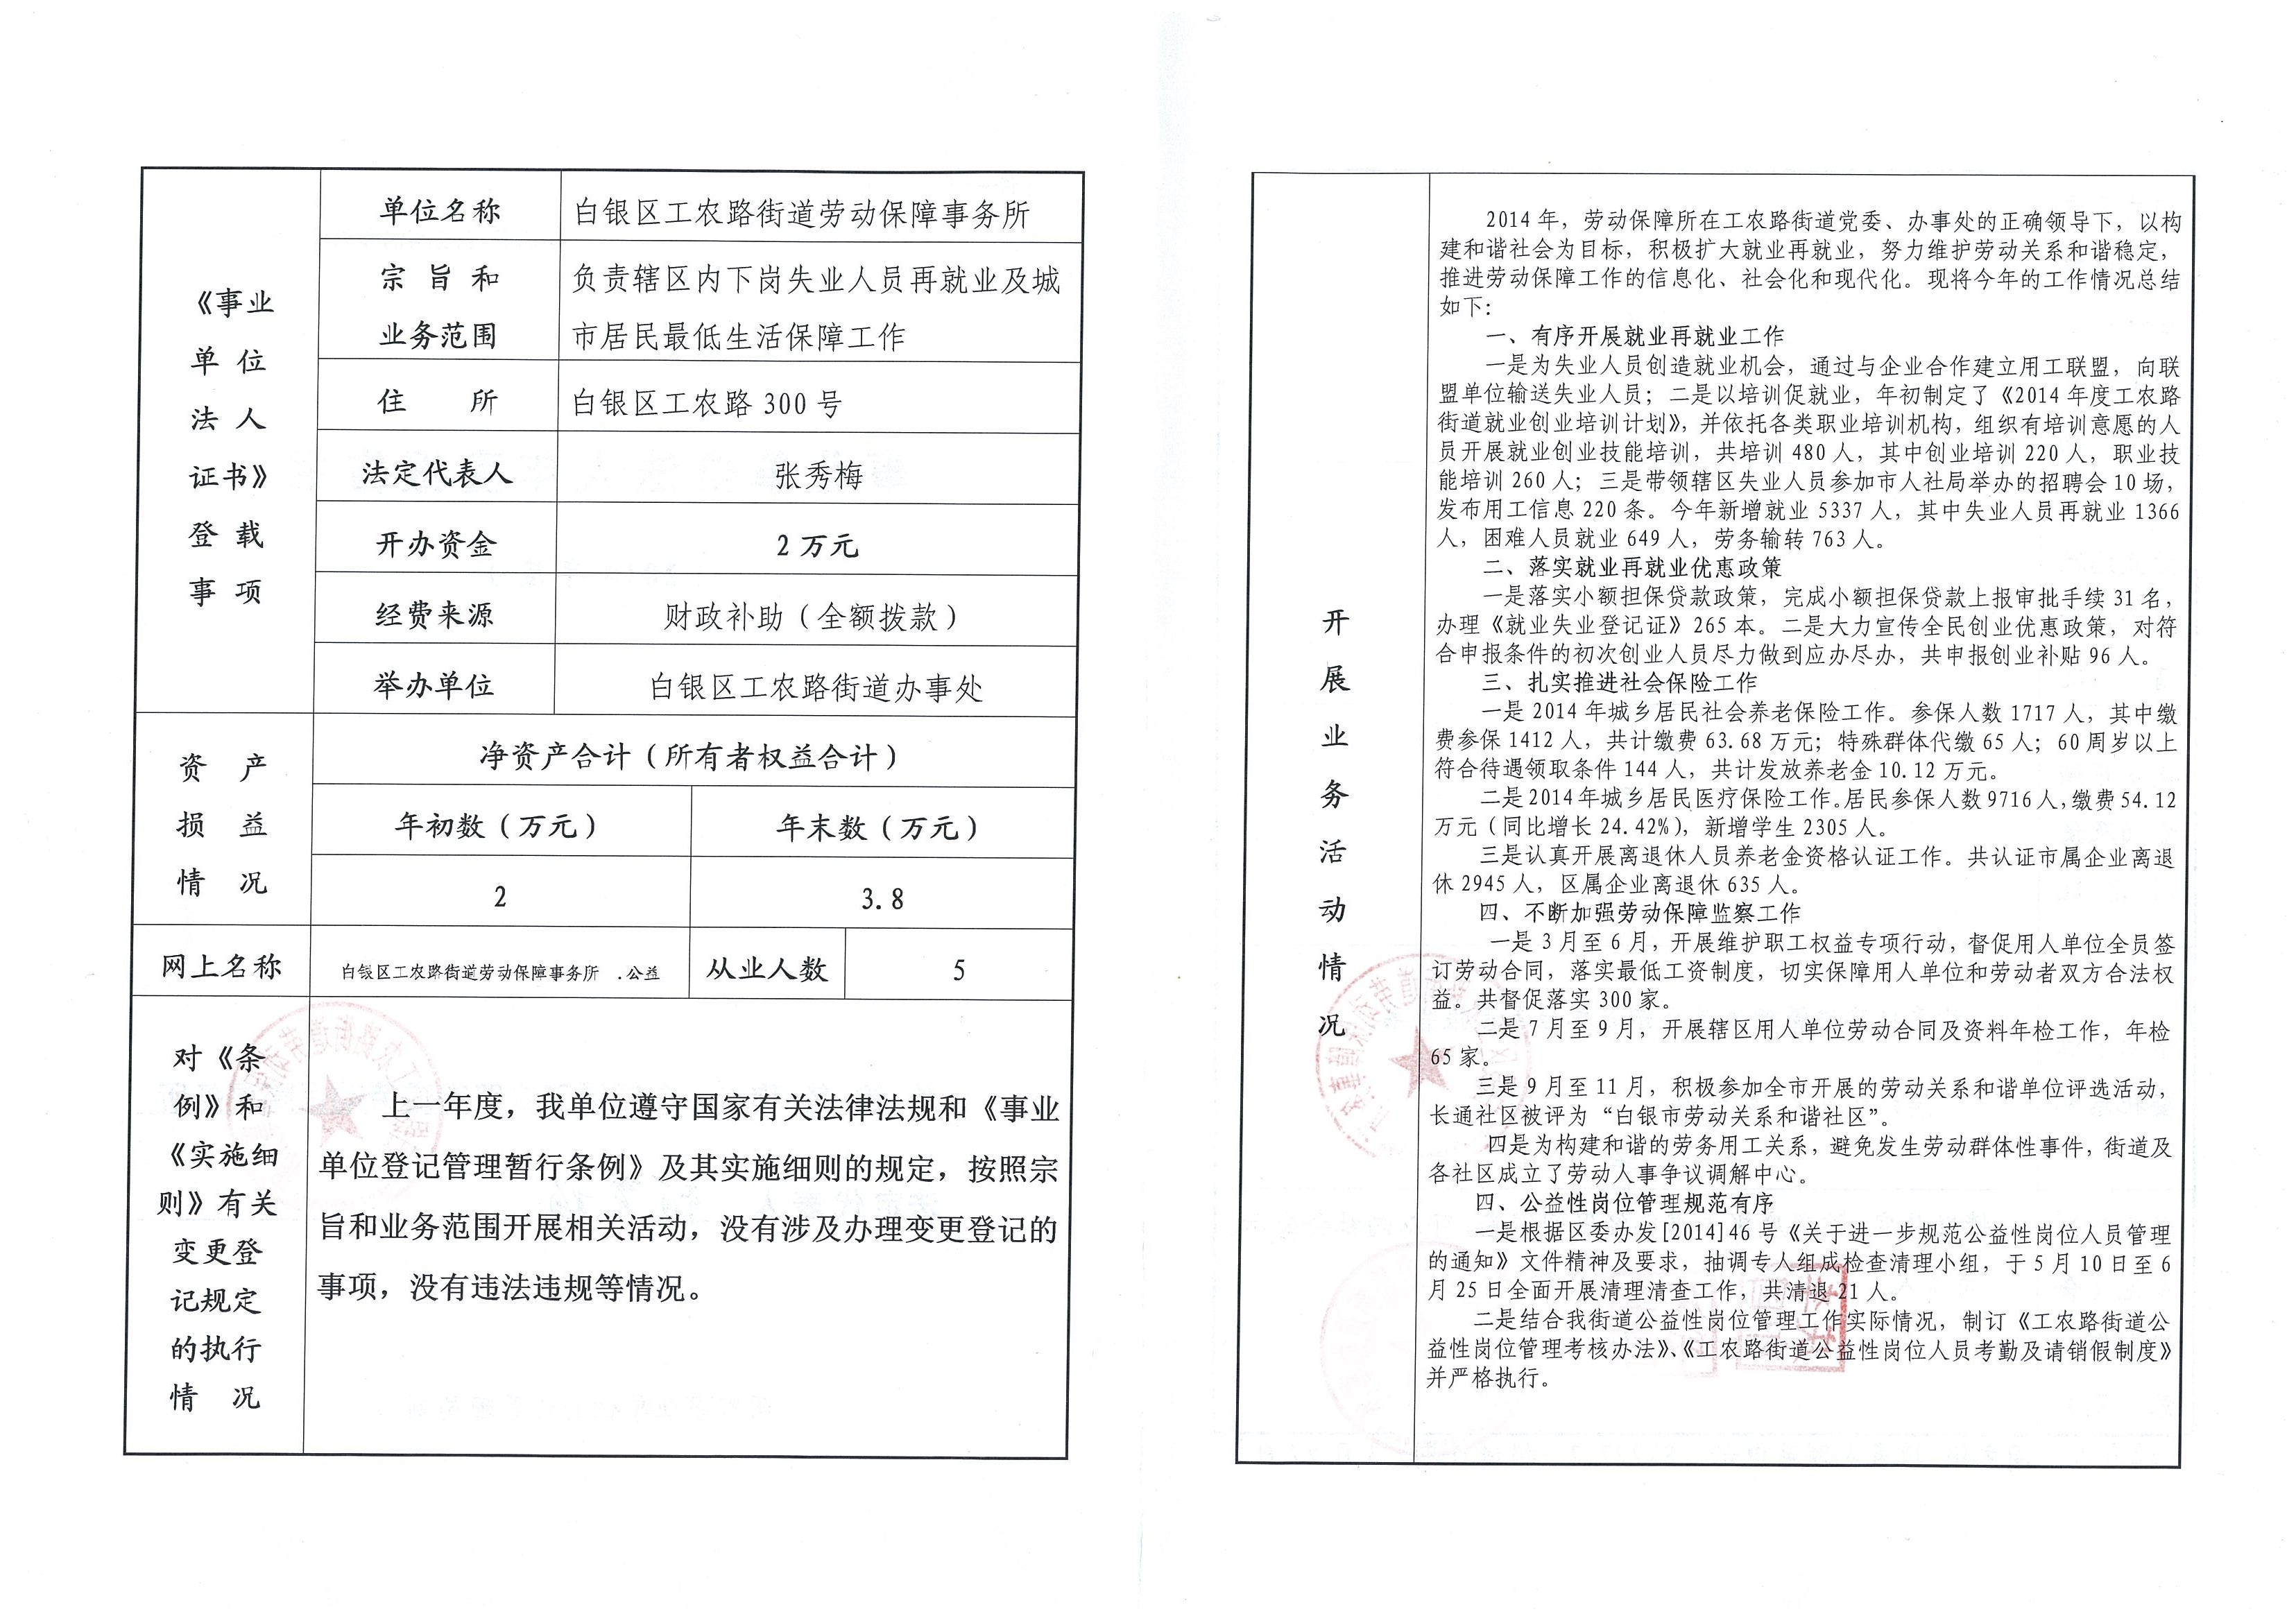 《事业
单位
法人
证书》
登载
事项
单位名称
白银区工农路街道劳动保障事务所
宗旨和
业务范围
负责辖区内下岗失业人员再就业及城
市居民最低生活保障工作
住所
白银区工农路 300 号
法定代表人
张秀梅
开办资金
2 万元
经费来源
财政补助（全额拨款）
举办单位
白银区工农路街道办事处
资产
损益
情况
净资产合计（所有者权益合计）
年初数（万元）
年末数（万元）
2
3.8
网上名称
白银区工农路街道劳动保障事务所 .公益
从业人数
5
对《条
例》和
《实施细
则》有关
变更登
记规定
的执行
情况
上一年度，我单位遵守国家有关法律法规和《事业
单位登记管理暂行条例》及其实施细则的规定，按照宗
旨和业务范围开展相关活动，没有涉及办理变更登记的
事项，没有违法违规等情况。
开
展
业
务
活
动
情
况
2014 年，劳动保障所在工农路街道党委、办事处的正确领导下，以构
建和谐社会为目标，积极扩大就业再就业，努力维护劳动关系和谐稳定，
推进劳动保障工作的信息化、社会化和现代化。现将今年的工作情况总结
如下：
一、有序开展就业再就业工作
一是为失业人员创造就业机会，通过与企业合作建立用工联盟，向联
盟单位输送失业人员；二是以培训促就业，年初制定了《2014 年度工农路
街道就业创业培训计划》，并依托各类职业培训机构，组织有培训意愿的人
员开展就业创业技能培训，共培训 480 人，其中创业培训 220 人，职业技
能培训 260 人；三是带领辖区失业人员参加市人社局举办的招聘会 10 场，
发布用工信息 220 条。今年新增就业 5337 人，其中失业人员再就业 1366
人，困难人员就业 649 人，劳务输转 763 人。
二、落实就业再就业优惠政策
一是落实小额担保贷款政策，完成小额担保贷款上报审批手续 31 名，
办理《就业失业登记证》265 本。二是大力宣传全民创业优惠政策，对符
合申报条件的初次创业人员尽力做到应办尽办，共申报创业补贴 96 人。
三、扎实推进社会保险工作
一是 2014 年城乡居民社会养老保险工作。参保人数 1717 人，其中缴
费参保 1412 人，共计缴费 63.68 万元；特殊群体代缴 65 人；60 周岁以上
符合待遇领取条件 144 人，共计发放养老金 10.12 万元。
二是 2014 年城乡居民医疗保险工作。居民参保人数 9716 人，缴费 54.12
万元（同比增长 24.42%），新增学生 2305 人。
三是认真开展离退休人员养老金资格认证工作。共认证市属企业离退
休 2945 人，区属企业离退休 635 人。
四、不断加强劳动保障监察工作
一是 3 月至 6 月，开展维护职工权益专项行动，督促用人单位全员签
订劳动合同，落实最低工资制度，切实保障用人单位和劳动者双方合法权
益。共督促落实 300 家。
二是 7 月至 9 月，开展辖区用人单位劳动合同及资料年检工作，年检
65 家。
三是 9 月至 11 月，积极参加全市开展的劳动关系和谐单位评选活动，
长通社区被评为“白银市劳动关系和谐社区”。
四是为构建和谐的劳务用工关系，避免发生劳动群体性事件，街道及
各社区成立了劳动人事争议调解中心。
四、公益性岗位管理规范有序
一是根据区委办发[2014]46 号《关于进一步规范公益性岗位人员管理
的通知》文件精神及要求，抽调专人组成检查清理小组，于 5 月 10 日至 6
月 25 日全面开展清理清查工作，共清退 21 人。
二是结合我街道公益性岗位管理工作实际情况，制订《工农路街道公
益性岗位管理考核办法》、《工农路街道公益性岗位人员考勤及请销假制度》
并严格执行。